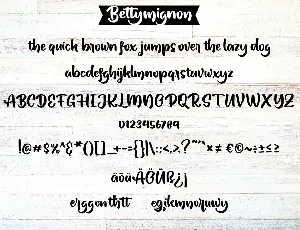 Bettymignon
the quick brown fox jumps over the lazy dog
abcdefghijklmnopqrstuvwxyz
ABCDEFGHIJKLMNOPQRSTUVWXYZ
0123456789
!@#$%^&*()[]_+-={}|\:;<,>.?~"^×≠€©¬÷±≤≥
ãöüÄÖÜß¿¡